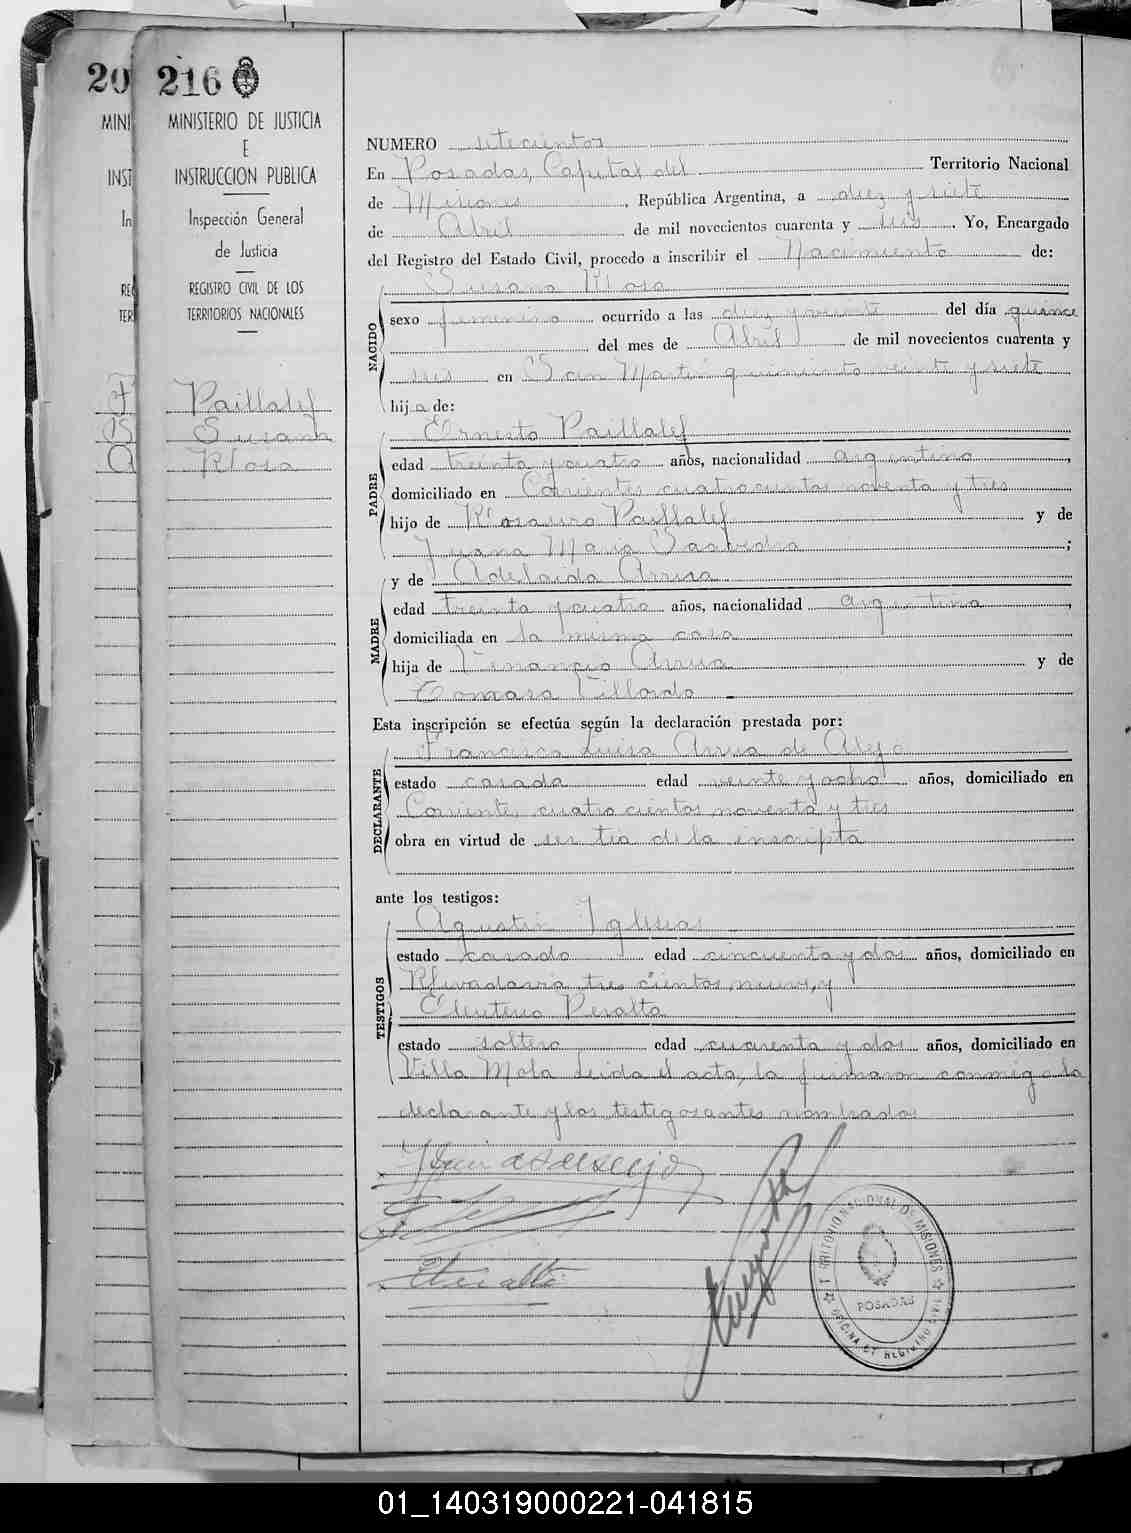 20
216
MINISTERIO DE JUSTICIA
E
INSTRUCCION PUBLICA
Inspección General
de Justicia
REGISTRO CIVIL DE LOS
TERRITORIOS NACIONALES
Paillalef
Susana
Rosa
NUMERO setecientos
En Posadas, Capital del Territorio Nacional
de Misiones, República Argentina, a diez y siete
de Abril de mil novecientos cuarenta y seis. Yo, Encargado
del Registro del Estado Civil, procedo a inscribir el Nacimiento de:
Susana Rosa
NACIDO
sexo femenino ocurrido a las diez y veinte del día quince
del mes de Abril de mil novecientos cuarenta y
seis en San Martín quinientos veinte y siete
hija de:
Ernesto Paillalef
PADRE
edad treinta y cuatro años, nacionalidad argentino,
domiciliado en Corrientes cuatrocientos noventa y tres
hijo de Rosauro Paillalef y de
Juana María Saavedra;
y de Adelaida Arrua
MADRE
edad treinta y cuatro años, nacionalidad argentina,
domiciliada en la misma casa
hija de Venancio Arrua y de
Tomasa Villordo
Esta inscripción se efectúa según la declaración prestada por:
Francisca Luisa Arrua de
DECLARANTE
estado casada edad veinte y ocho años, domiciliado en
Corrientes cuatrocientos noventa y tres
obra en virtud de ser tía de la inscripta
ante los testigos:
Agustin Iglesias
TESTIGOS
estado casado edad cincuenta y dos años, domiciliado en
Rivadavia tres cientos nueve, y
Eleuterio Peralta
estado soltero edad cuarenta y dos años, domiciliado en
Villa Mola Leida el acta, la firmaron conmigo la
declarante y los testigos antes nombrados
TERRITORIO NACIONAL DE MISIONES
POSADAS
OFICINA DE REGISTRO CIVIL
01_140319000221-041815